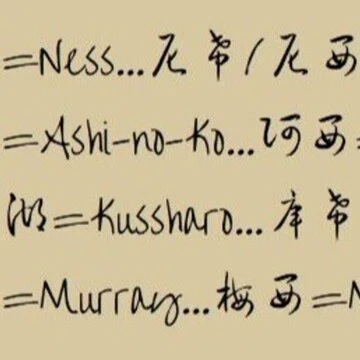 =Ness...尼希/尼西
=Ashi-no-Ko...阿西=
湖=Kussharo...库希
=Murray...梅西=N